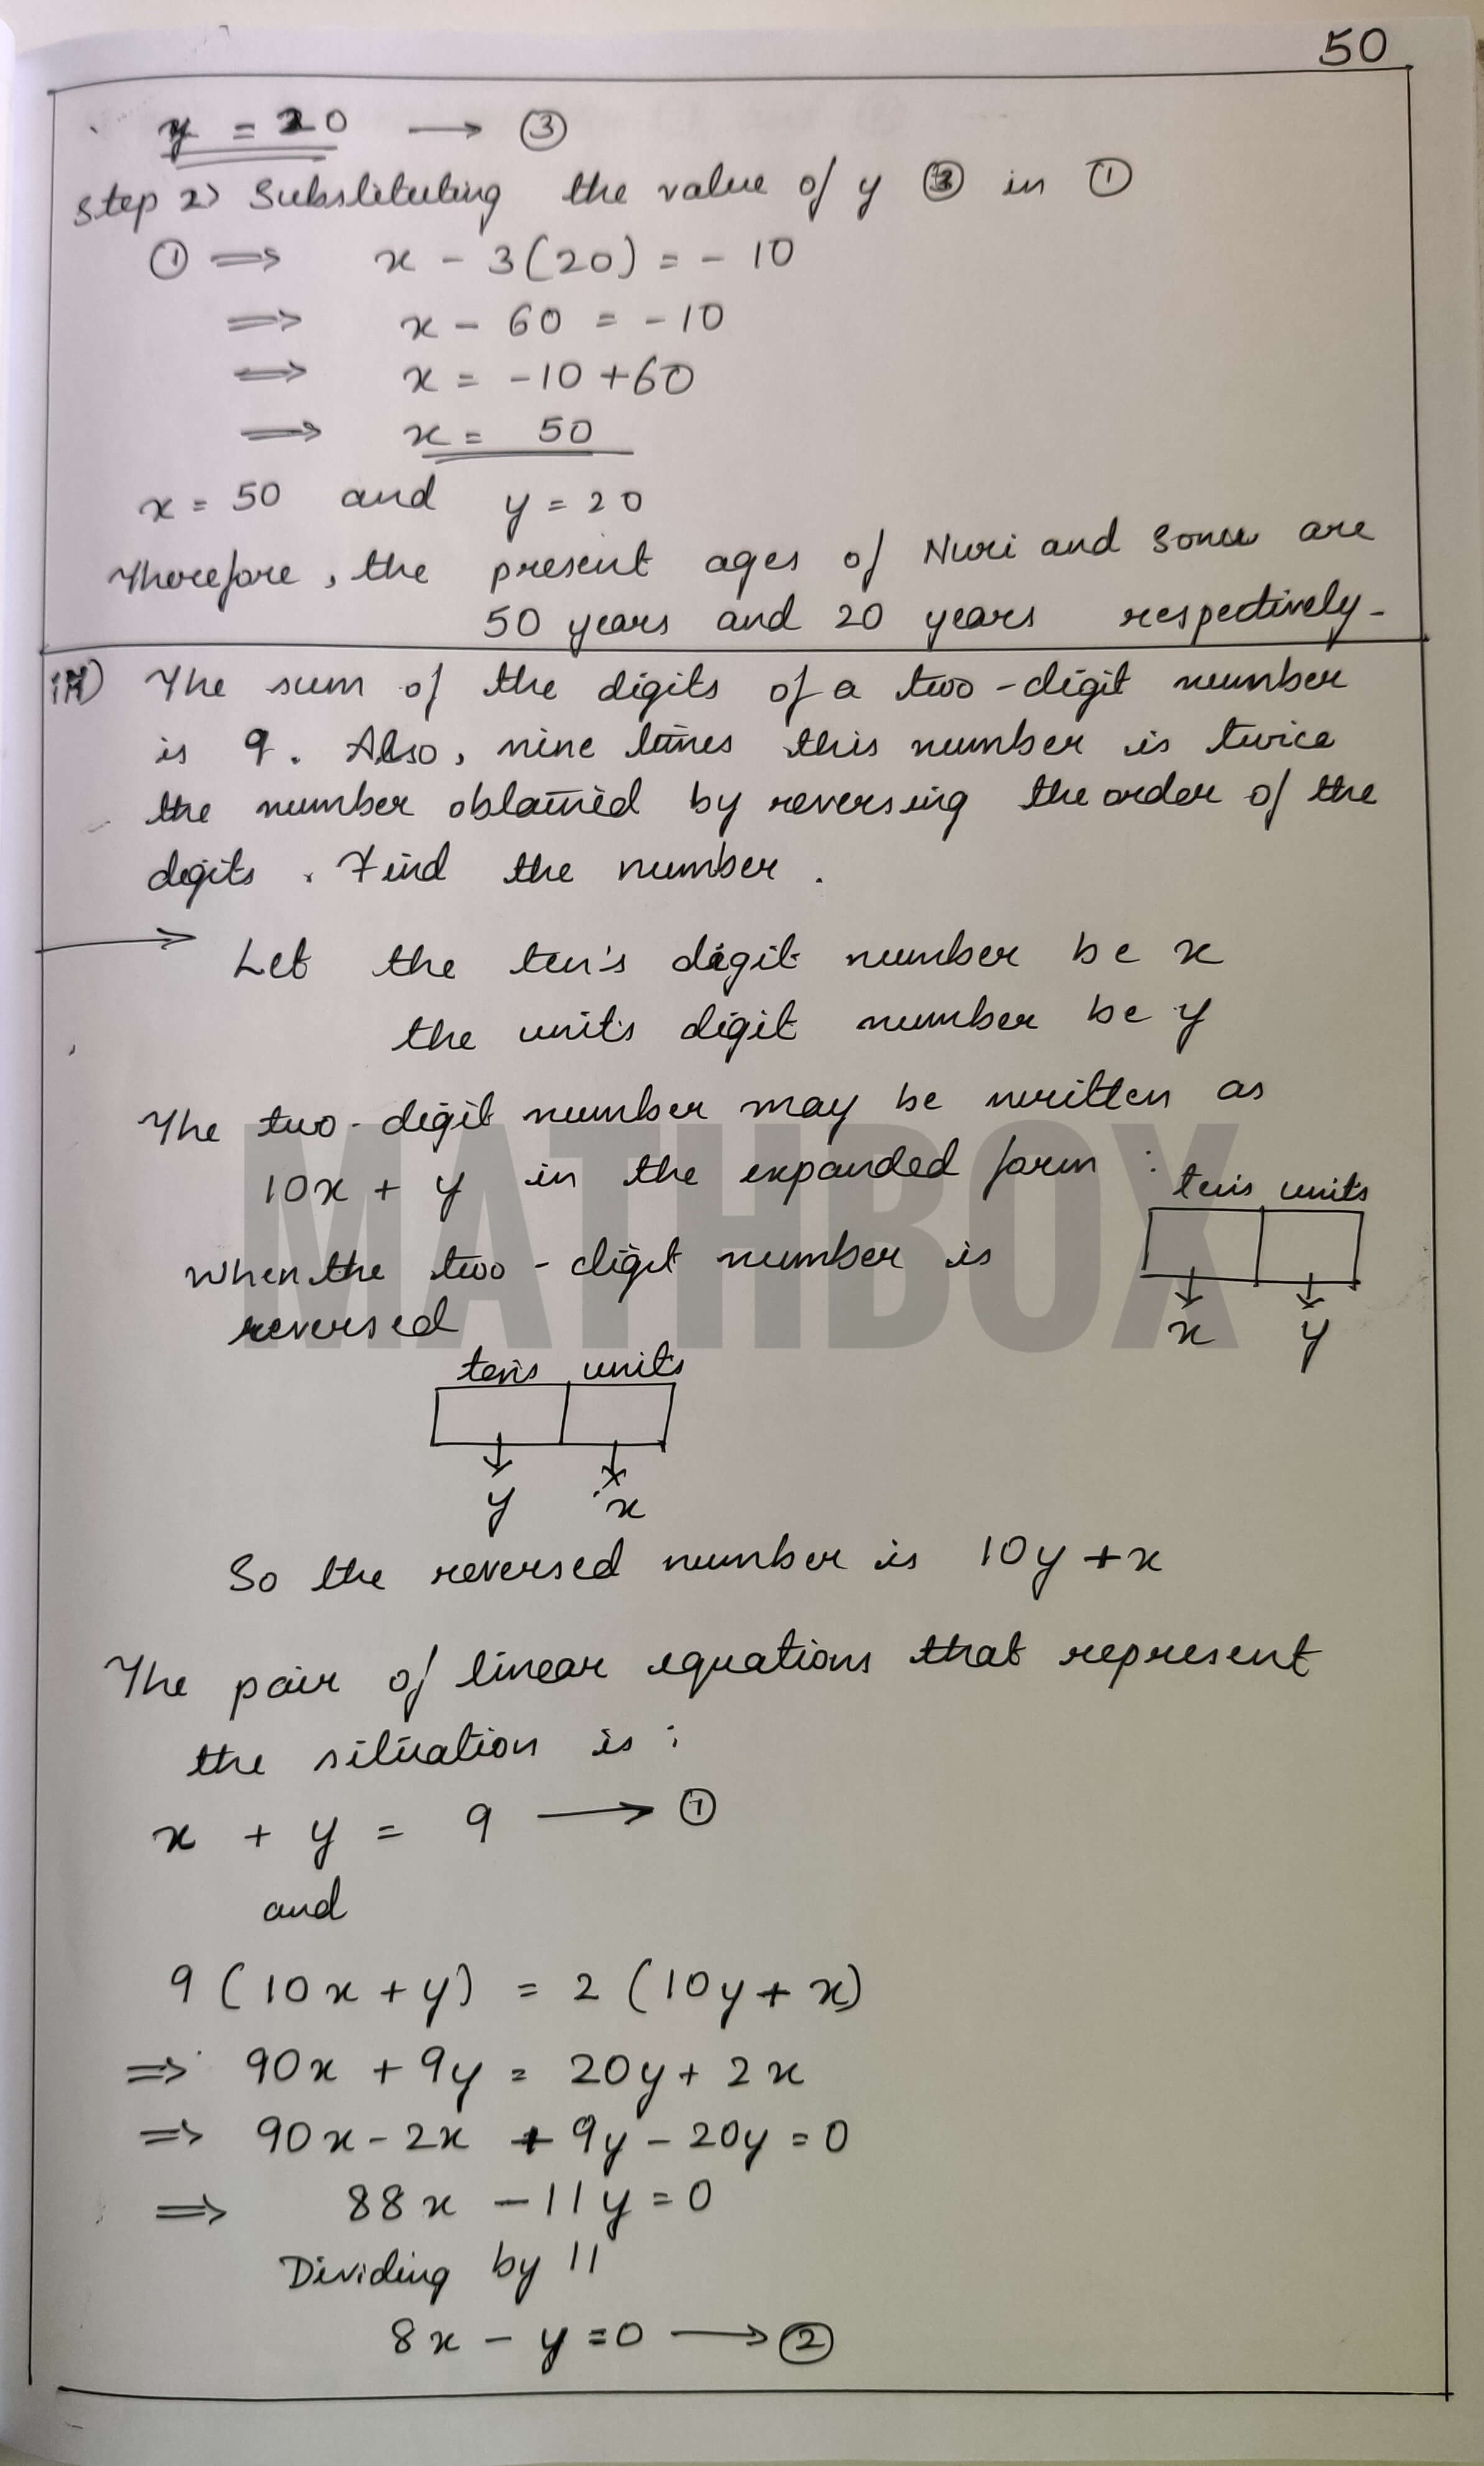 50
y = 20 → ③
Step 2> Substituting the value of y ③ in ①
① ⇒ x - 3(20) = - 10
⇒ x - 60 = - 10
⇒ x = -10 + 60
⇒ x = 50
x = 50 and y = 20
Therefore, the present ages of Nuri and Sonu are
50 years and 20 years respectively.
The sum of the digits of a two-digit number
is 9. Also, nine times this number is twice
the number obtained by reversing the order of the
digits. Find the number.
→ Let the ten's digit number be x
the unit's digit number be y
The two-digit number may be written as
10x + y in the expanded form :
tens units
x y
When the two-digit number is
reversed
tens units
y x
So the reversed number is 10y + x
The pair of linear equations that represent
the situation is :
x + y = 9 → ①
and
9 (10x + y) = 2 (10y + x)
⇒ 90x + 9y = 20y + 2x
⇒ 90x - 2x + 9y - 20y = 0
⇒ 88x - 11y = 0
Dividing by 11
8x - y = 0 → ②
MATHBOX